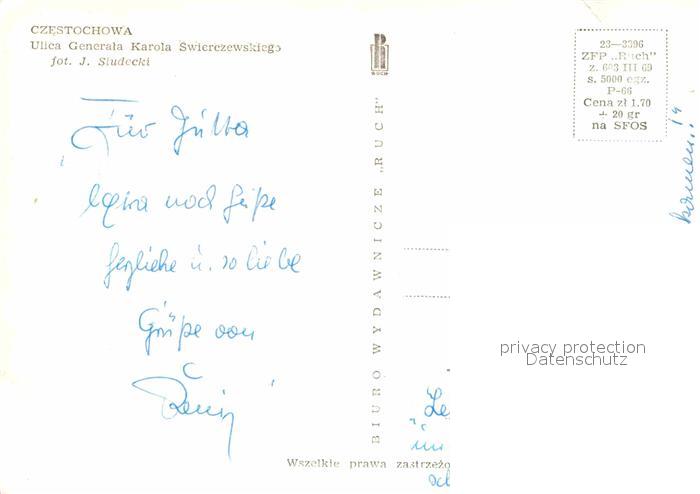 CZĘSTOCHOWA
Ulica Generała Karola Świerczewskiego
fot. J. Siudecki
RUCH
23—3396
ZFP „Ruch"
z. 603 III 69
s. 5000 egz.
P-66
Cena zł 1.70
+ 20 gr
na SFOS
Für Jutta
noch
herzliche u. so liebe
Grüße von
BIURO WYDAWNICZE „RUCH"
privacy protection
Datenschutz
Wszelkie prawa zastrzeżo